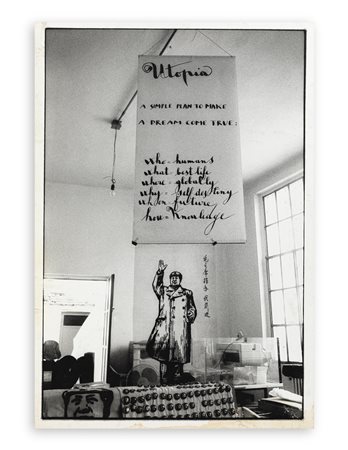 Utopia
A SIMPLE PLAN TO MAKE
A DREAM COME TRUE:
who - humans
what - best life
where - globally
why - self destiny
when - future
how - Knowledge